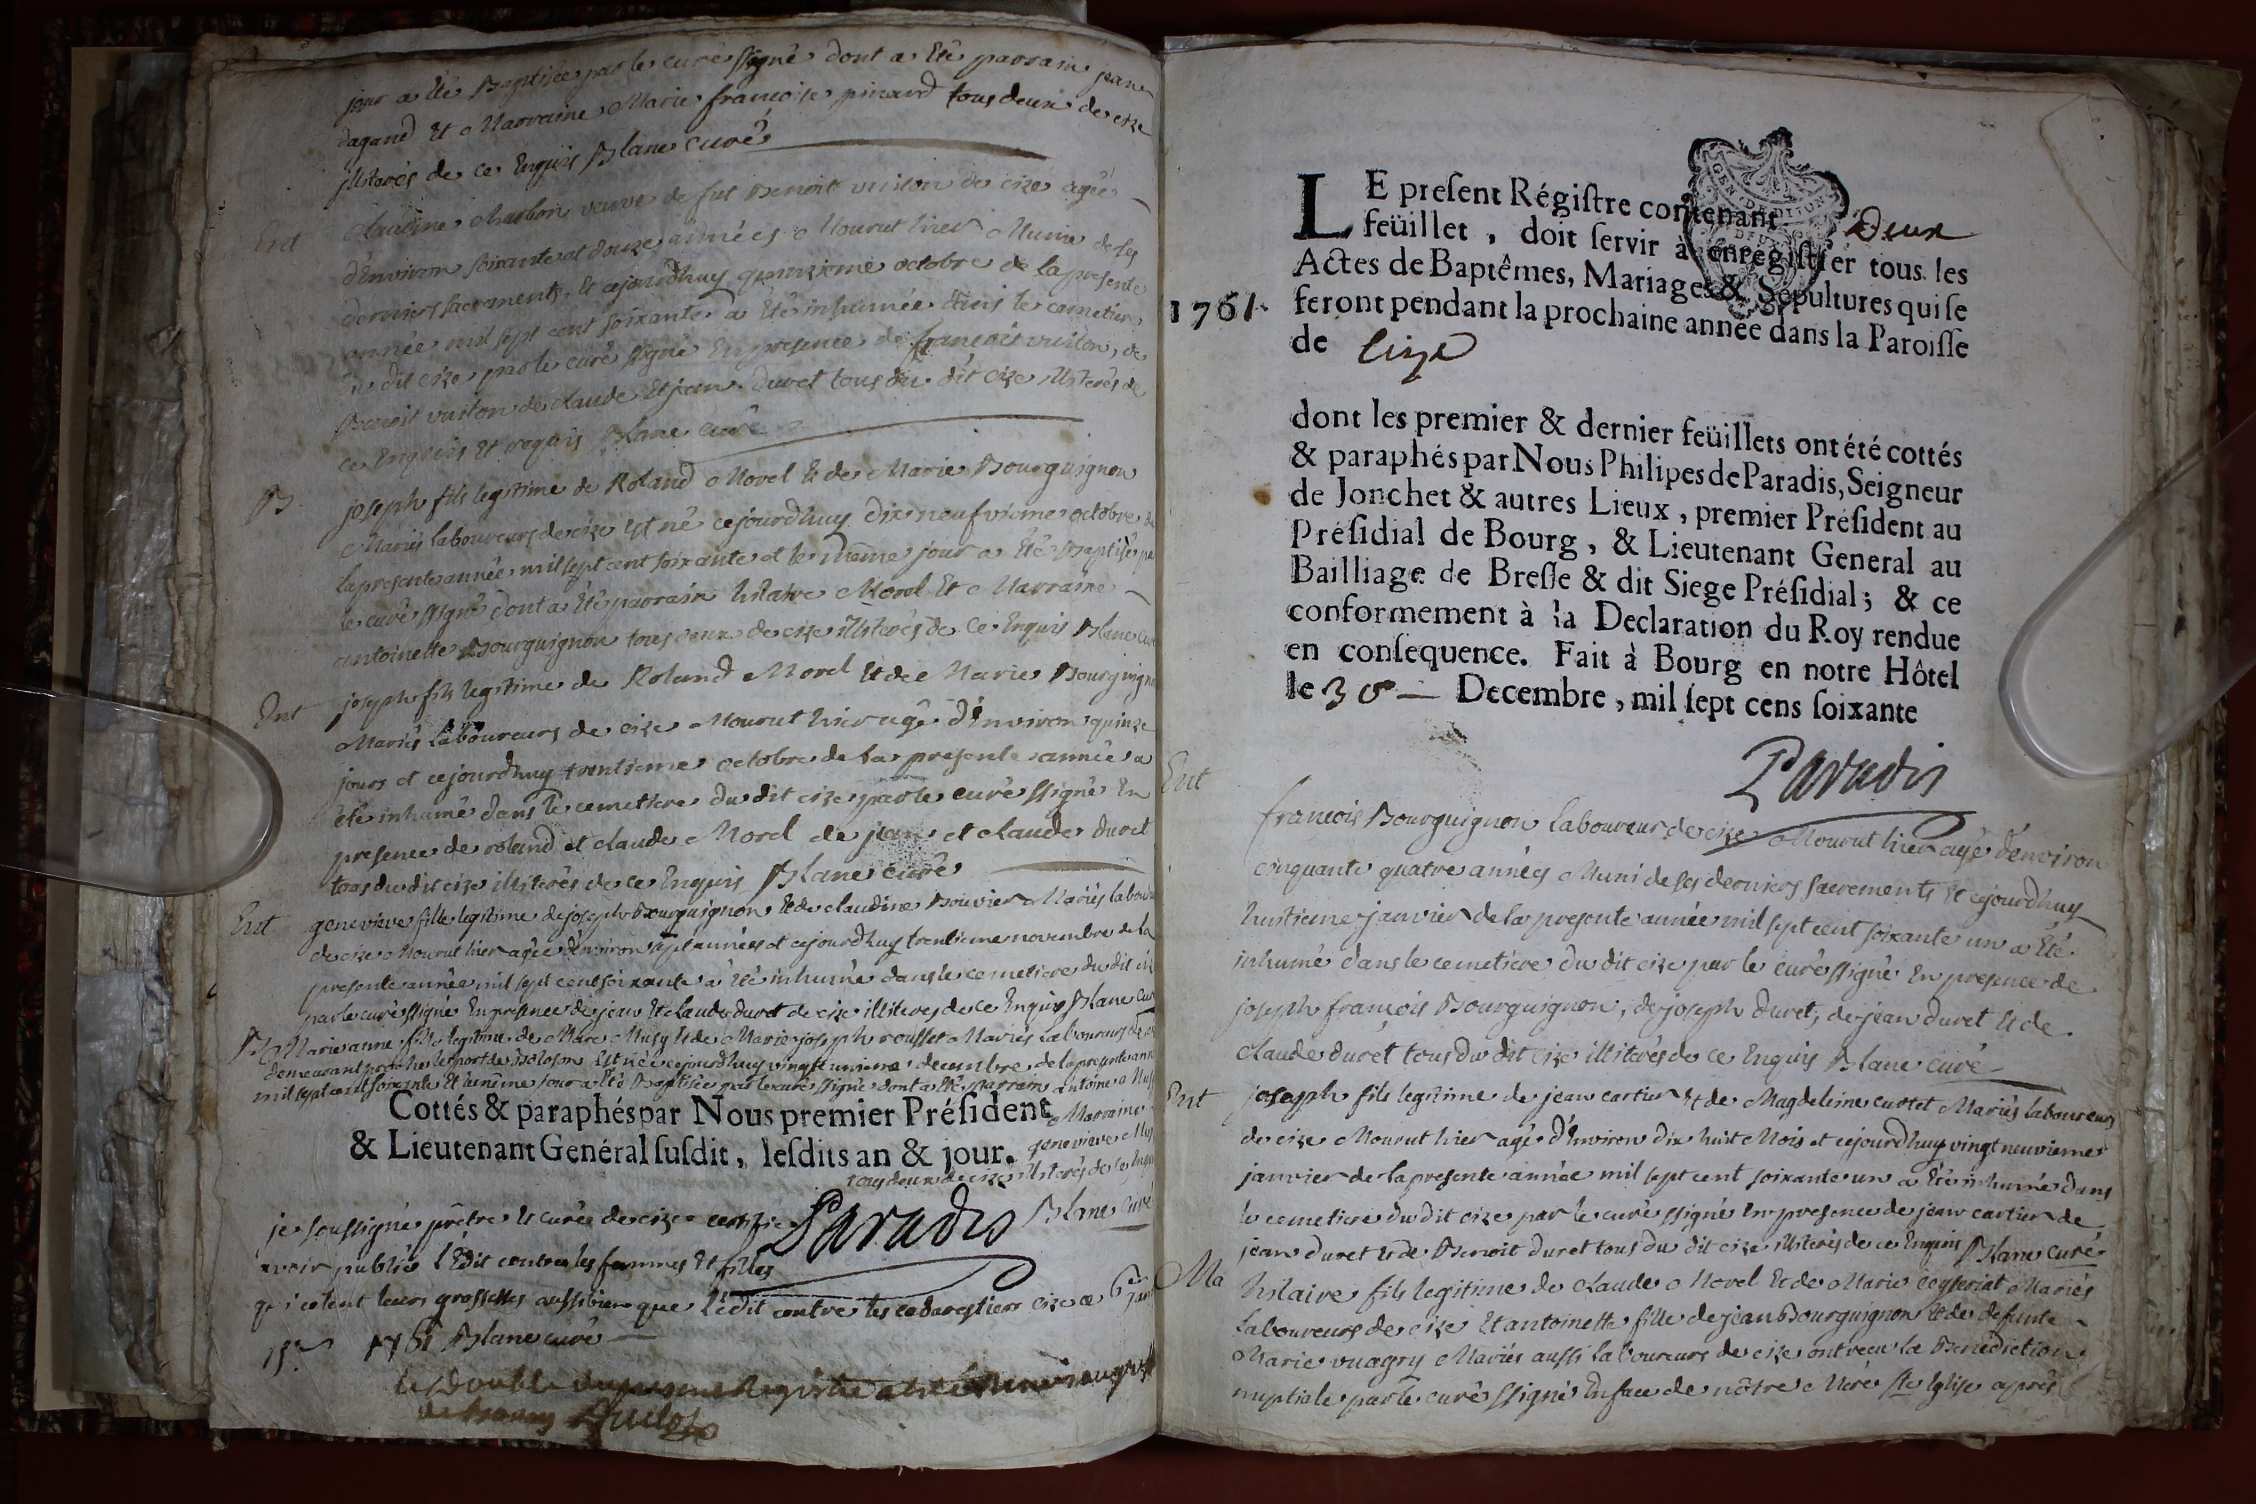 jour a Eté Baptisée par le curé ssigné dont a Eté parrain jean
dagand Et Marraine Marie francoise pinard tous deux de cize
illiterés de ce Enquis Blanc curé
Ent
Claudine Charbon veuve de fut Benoit vuiton de cize agée
d'Environ soixante et douze années Mourut hier Munie de ses
derniers sacrements, Et cejourdhuy quinzieme octobre de la presente
année mil sept cent soixante a Eté inhumée dans le cemetiere
du dit cize par le curé ssigné En presence de francois vuiton, de
Benoit vuiton de claude Et jean duret tous du dit cize illiterés de
ce Enquis Et requis Blanc curé
B
joseph fils legitime de Roland Morel Et de Marie Bourguignon
Mariés laboureurs de cize Est né cejourdhuy dix neufvieme octobre de
la presente année mil sept cent soixante et le même jour a Eté Baptisé par
le curé ssigné dont a Eté parrain hilaire Morel Et Marraine
antoinette Bourguignon tous deux de cize illiterés de ce Enquis Blanc curé
Ent
joseph fils legitime de Roland Morel Et de Marie Bourguignon
Mariés laboureurs de cize Mourut hier agé d'Environ quinze
jours et cejourdhuy trentieme octobre de la presente année a
été inhumé dans le cemetiere du dit cize par le curé ssigné En
presence de roland et claude Morel de jean et claude duret
tous du dit cize illiterés de ce Enquis Blanc curé
Ent
genevieve fille legitime de joseph Bourguignon Et de claudine Bouvier Mariés laboureurs
de cize Mourut hier agée d'environ sept années et cejourdhuy trentieme novembre de la
presente année mil sept cent soixante a Eté inhumée dans le cemetiere du dit cize
par le curé ssigné En presence de jean Et claude duret de cize illiteres de ce Enquis Blanc curé
B
Marie anne fille legitime de Marc Musy Et de Marie joseph rousset Mariés laboureurs de cize
demeurant proche le port de Est née cejourdhuy vingt unieme decembre de la presente année
mil sept cent soixante Et le même jour a Eté Baptisée par le curé ssigné dont a Eté parrain antoine Musy
Cottés & paraphés par Nous premier Préſident
& Lieutenant Genéral ſuſdit, leſdits an & jour.
Marraine
genevieve Musy
tous deux de cize illiterés de ce Enquis
Blanc curé
Paradis
je soussigné prêtre Et curé de cize certifie
avoir publié l'Edit contre les femmes Et filles
qui celent leurs grossesses aussi bien que l'édit contre les cize ce 6e janv
1761 Blanc curé
le double du present Registre a Eté
LE preſent Régiſtre contenant Deux
feüillet, doit ſervir à enrégiſtrer tous les
Actes de Baptêmes, Mariages & Sépultures qui ſe
1761.
feront pendant la prochaine année dans la Paroiſſe
de Cize
dont les premier & dernier feüillets ont été cottés
& paraphés par Nous Philipes de Paradis, Seigneur
de Jonchet & autres Lieux, premier Préſident au
Préſidial de Bourg, & Lieutenant General au
Bailliage de Breſſe & dit Siege Préſidial; & ce
conformement à la Declaration du Roy rendue
en conſequence. Fait à Bourg en notre Hôtel
le 30 Decembre, mil ſept cens ſoixante
Paradis
Ent
francois Bourguignon laboureur de cize Mourut hier agé d'environ
cinquante quatre années Muni de ses derniers sacrements Et cejourdhuy
huitieme janvier de la presente année mil sept cent soixante un a Eté
inhumé dans le cemetiere du dit cize par le curé ssigné En presence de
joseph françois Bourguignon, de joseph duret, de jean duret Et de
claude duret tous du dit cize illiterés de ce Enquis Blanc curé
Ent
joseph fils legitime de jean cartier Et de Magdeleine curtet Mariés laboureurs
de cize Mourut hier agé d'Environ dix huit Mois et cejourdhuy vingt neuvieme
janvier de la presente année mil sept cent soixante un a Eté inhumé dans
le cemetiere du dit cize par le curé ssigné En presence de jean cartier de
jean duret Et de Benoit duret tous du dit cize illiterés de ce Enquis Blanc curé
Ma
hilaire fils legitime de claude Morel Et de Marie ceyseriat Mariés
laboureurs de cize Et antoinette fille de jean Bourguignon Et de defunte
Marie vuagry Mariés aussi laboureurs de cize ont recu la Benediction
nuptiale par le curé ssigné En face de nôtre Mere ste Eglise après